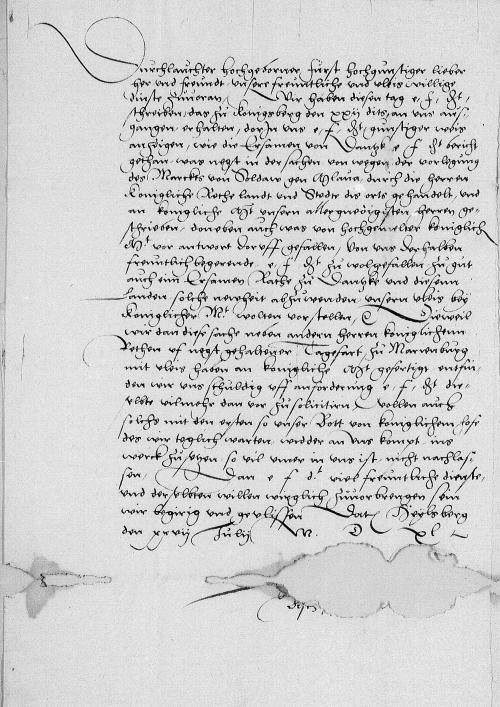 Durchlauchter hochgeborner Fürst hochgunstiger lieber
her und freundt unsere freuntliche und vleis willige
dinste zuuoran. Wir haben diesen tag e. f. dt
schreiben, das zu Konigsberg den xxij dits, an uns aus
gangen erhalten, dorin uns e. f. dt gunstiger weis
anzeigen, wie die Ersamen von Dantzk e. f. dt bericht
gethan, was negst in der sachen von wegen der vorlegung
des Marckts von Soldaw gen Mlawa, durch die herren
Konigliche Rethe landt und Stedte dis orts gehandelt, und
an konigliche Mt unsern allergnedigsten herren ge-
schrieben, doneben auch was von hochgemelter koniglich
Mt vor antwort doruff gefallen, Von uns derhalben
freuntlich begerende, e. f. dt zu wolgefallen, zu gut
auch eim Ersamen Rathe zu Dantzke und diesenn
landen solche neuheit abzuwenden unsern vleis bey
Koniglicher Mt wolten vorstellen, Dieweil
wir dan diese sache neben andern herren koniglichenn
Rethen uf negst gehaltener Tagefart, zu Marienburg
mit vleis haben an konigliche Mt gefertigt entfin-
den wir uns schuldig uff anforderung e. f. dt die-
selbte vilmehr dan vor zu solicitirn, Wollen auch
solchs mit den ersten so unser Bott von koniglichem hofe
des wir teglich warten, widder an uns kompt, ins
werck zu sehen so vil unser in uns ist, nicht nachlas-
sen, Dan e. f. dt viel freuntliche dienste
und derselbten willen muglich zuuorbrengen sein
wir begirig und gevlissen Dat. Heylsberg
den xxvij Julij M. D XL